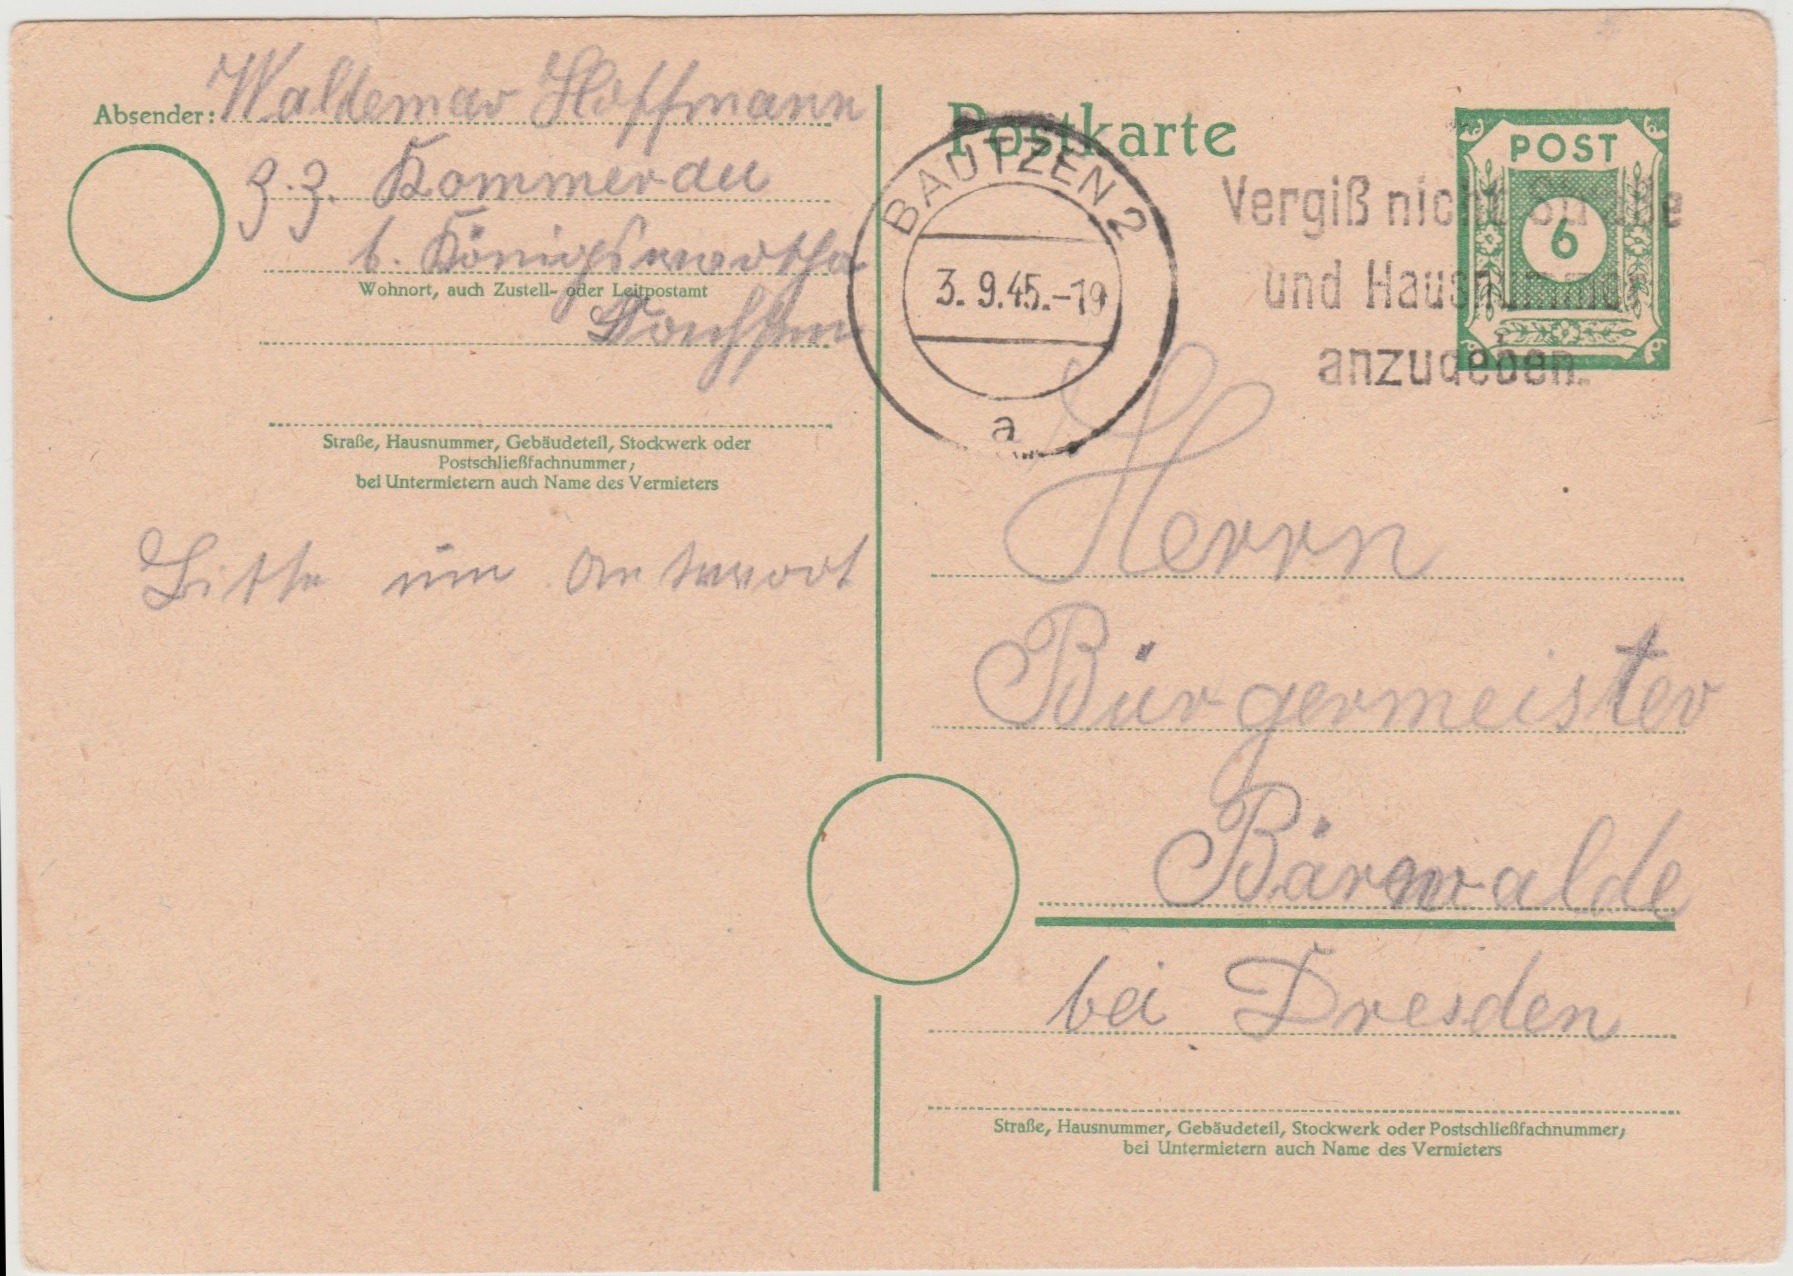 Absender: Waldemar Hoffmann
z.Z. Kommerau
b. Königswartha
Wohnort, auch Zustell- oder Leitpostamt
Straße, Hausnummer, Gebäudeteil, Stockwerk oder
Postschließfachnummer;
bei Untermietern auch Name des Vermieters
Bitte um Antwort
Postkarte
BAUTZEN 2
3. 9.45.-19
a
Vergiß nicht Straße
und Hausnummer
anzugeben.
POST
6
Herrn
Bürgermeister
Bärnwalde
bei Dresden
Straße, Hausnummer, Gebäudeteil, Stockwerk oder Postschließfachnummer;
bei Untermietern auch Name des Vermieters